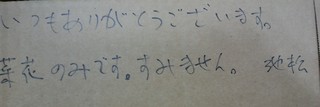 いつもありがとうございます。
菜花のみです。すみません。 池松